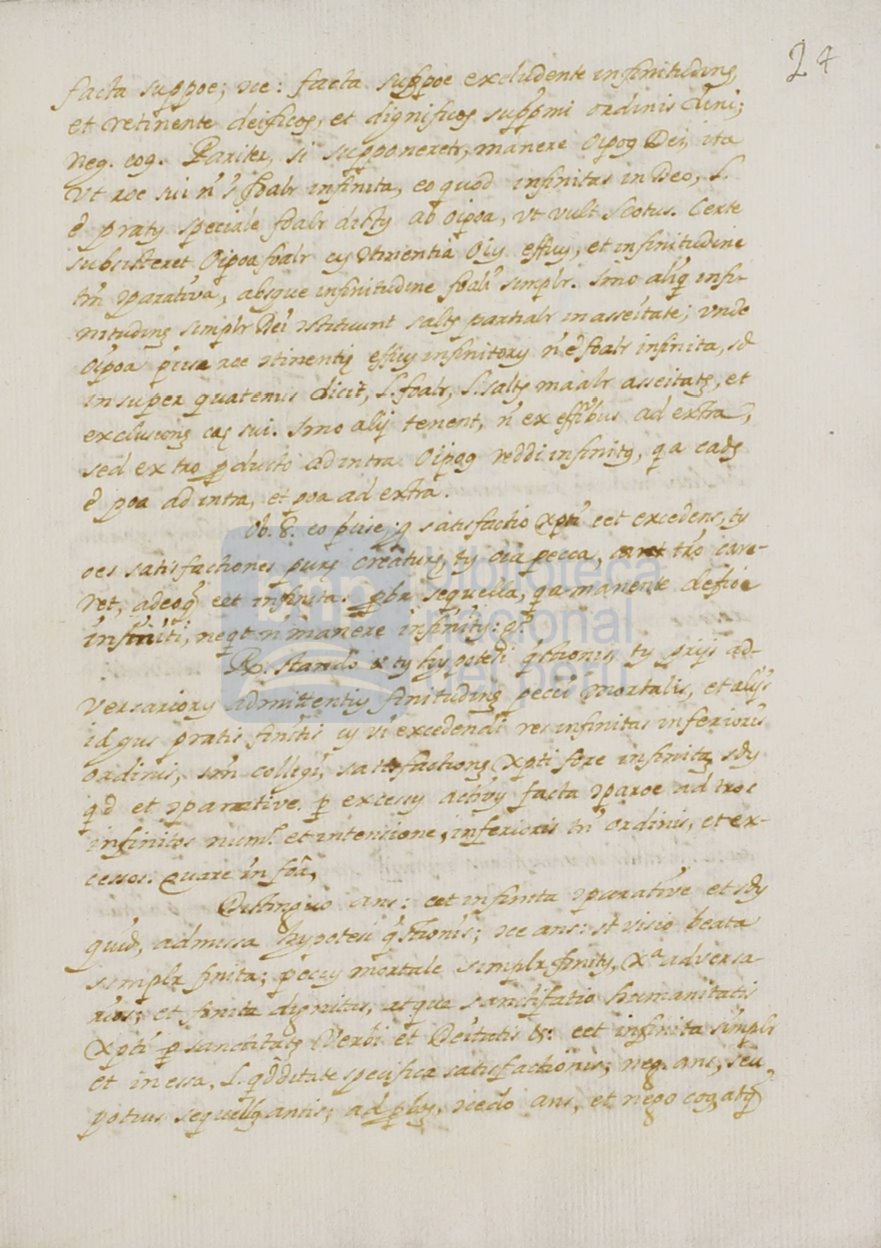 24
facta suppoe; ꝯce: facta suppoe excludente infinitudinꝫ,
et retinente deificoꝫ, et dignificoꝫ suppmi ordinis divi;
neg. coq. Pariter, si supponeretr, manere Oipoꝫ Dei, ita
Vt roe sui n̄ s̄ foalr infinita, eo quod infinitas in Deo, l.
ē pratꝫ speciale foalr dictꝫ ab oipoa, vt vult Scotus. Certe
subsisteret Oipoa foalr cuꝫ ꝯtinentia Oiꝫ effuꝫ, et infinitudine
tm̄ ꝯparativa, absque infinitudine foali simplr. Imo aliq̨ infi-
nitudinꝫ simplr Dei ꝯstituunt saltꝫ partialr in asseitate; vnde
Oipoa puse roe ꝯtinentiꝫ effuꝫ infinitorꝫ n̄ ē foalr infinita, sd
insuper quatenus dicit, l. foalr, l. saltꝫ maalr asseitatꝫ, et
exclusionꝫ caꝫ sui. Imo alij tenent, n̄ ex effibus ad extra,
sed ex tro producto ad intra Oipoꝫ reddi infinitꝫ, q̨a eadꝫ
ē poa ad intra, et poa ad extra.
Ob. 8. eo puse, q̨ satisfactio Xpti eet excedens, tꝫ
oes satisfactiones purꝫ creaturꝫ, tꝫ oia pecca, tro care-
ret, adeoq̨ eet infinita. pbr sequella, q̨a manente defioe
infiniti, neqt n̄ manere infinitꝫ: g°.
R. stando in tꝫ hypotesi q̄stionis, tꝫ prijs ad-
versariorꝫ admittentiꝫ finitudinꝫ pecci mortalis, et alijs
idqus pratis finitis cꝫ vi excedendi res infinitas inferioris
ordinis, sm̄ collegi, satisfactionꝫ Xpti fore infinitꝫ sdꝫ
qd et ꝯparative p excessꝫ activꝫ facta ꝯparoe ad troc
infinitos num.° et intensione, inferioris tn̄ ordinis, et ex-
cessos. Quare in foa,
Distinguo ans: eet infinita ꝯparative et sdꝫ
quid, admissa hypotesi q̄stionis; ꝯce ans: st visio beata
simplr finita; peccꝫ mortale simplr finitꝫ, Xª adversa-
rios; et finita dignitas, atque sanctifatio humanitatis
Xpti p sanctitatꝫ Verbi et Deitatis &: eet infinita simplr
et in essa, l. qdditate specifica satisfactionis; neg. ans, seu
potius sequellꝫ antis; ad pbꝫ, ꝯcedo ans, et nego coꝫ atq̨